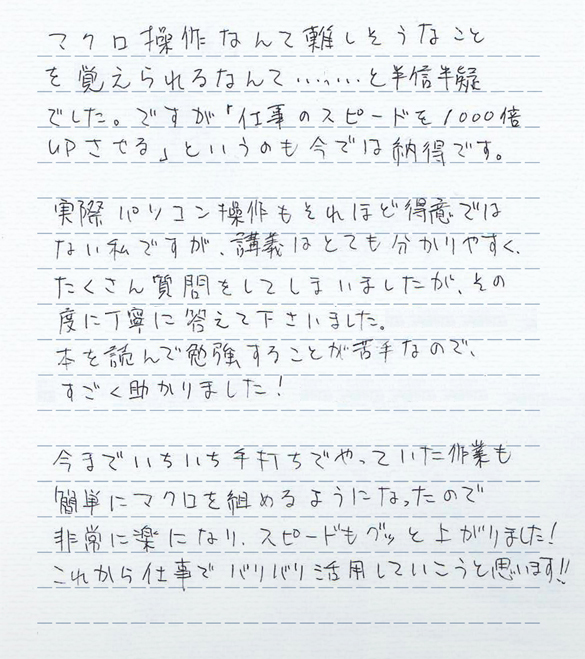 マクロ操作なんて難しそうなこと
を覚えられるなんて……と半信半疑
でした。ですが「仕事のスピードを1000倍
UPさせる」というのも今では納得です。
実際パソコン操作もそれほど得意では
ない私ですが、講義はとても分かりやすく、
たくさん質問をしてしまいましたが、その
度に丁寧に答えて下さいました。
本を読んで勉強することが苦手なので、
すごく助かりました!
今までいちいち手打ちでやっていた作業も
簡単にマクロを組めるようになったので
非常に楽になり、スピードもグッと上がりました!
これから仕事でバリバリ活用していこうと思います!!